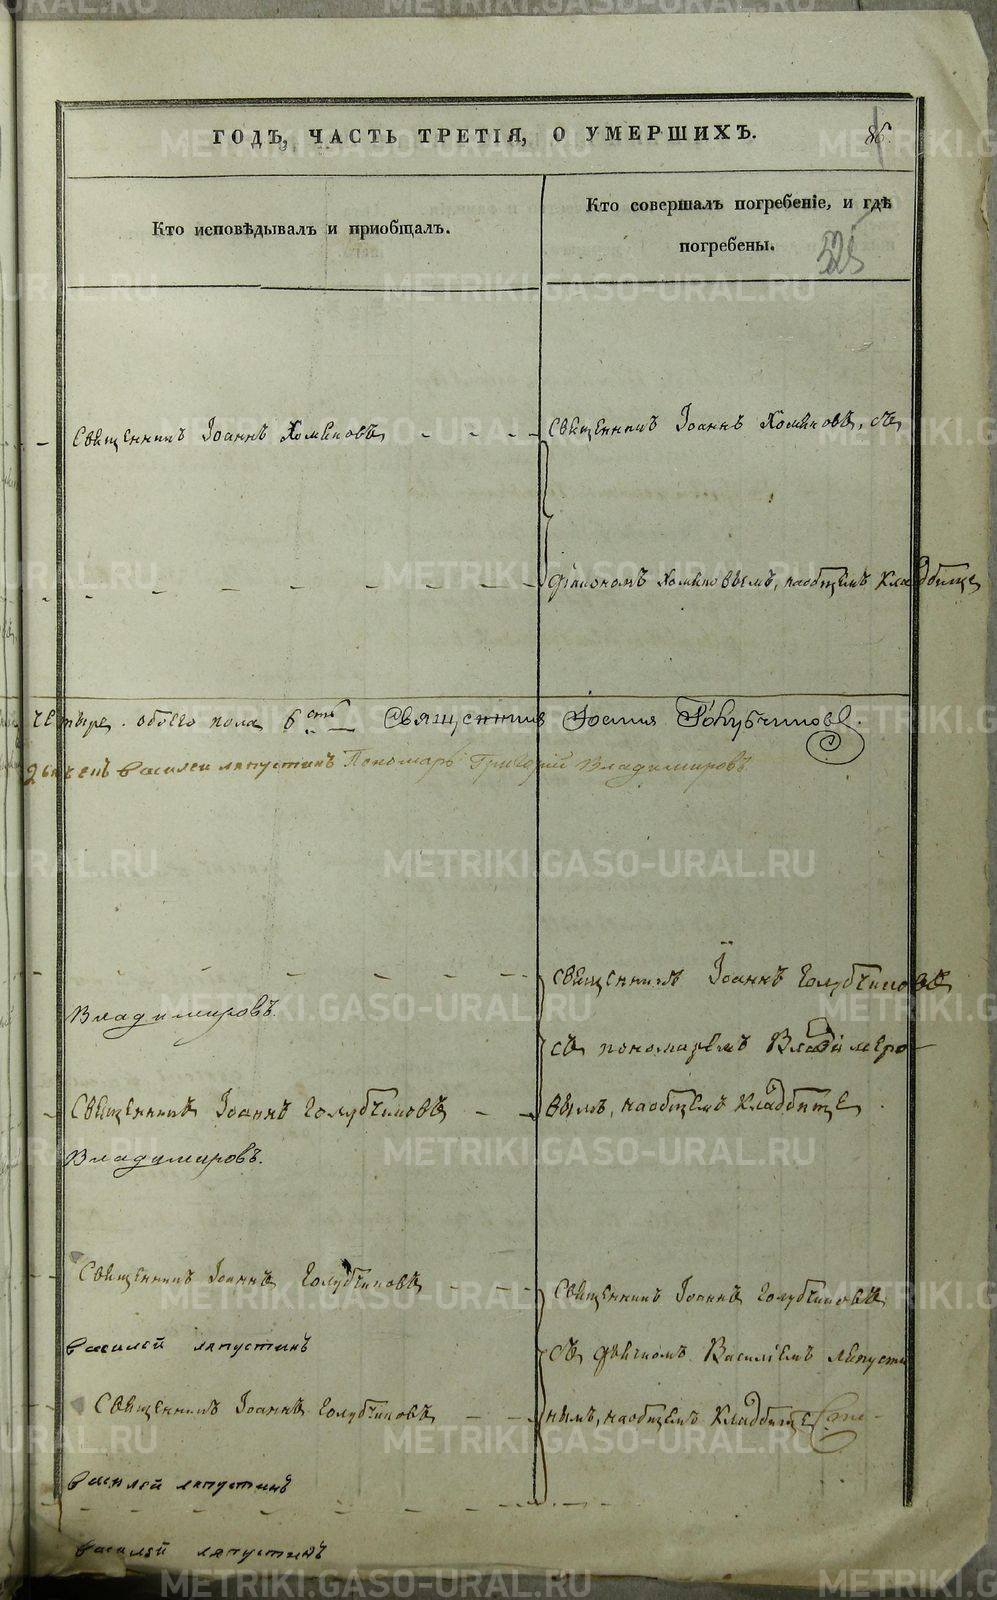 ГОДЪ, ЧАСТЬ ТРЕТІЯ, О УМЕРШИХЪ.
86.
Кто исповѣдывалъ и пріобщалъ.
Кто совершалъ погребеніе, и гдѣ
погребены.
525
Священникъ Іоаннъ Хомяковъ
Священникъ Іоаннъ Хомяковъ, съ
діакономъ Хомяковымъ, на общемъ кладбище
четыре. обоего пола 6сть Священникъ Іоаннъ Голубчиковъ.
дьячекъ Василей Ляпустинъ Пономарь Григорій Владимировъ
Владимировъ.
Священникъ Іоаннъ Голубчиковъ
съ пономаремъ Владимиро-
Священникъ Іоаннъ Голубчиковъ
вымъ, на общемъ кладбище.
Владимировъ.
Священникъ Іоаннъ Голубчиковъ
Священникъ Іоаннъ Голубчиковъ
Василей Ляпустинъ
съ дьячкомъ Василіемъ Ляпусти
Священникъ Іоаннъ Голубчиковъ
нымъ, на общемъ кладбище
Василей Ляпустинъ
Василей Ляпустинъ
METRIKI.GASO-URAL.RU